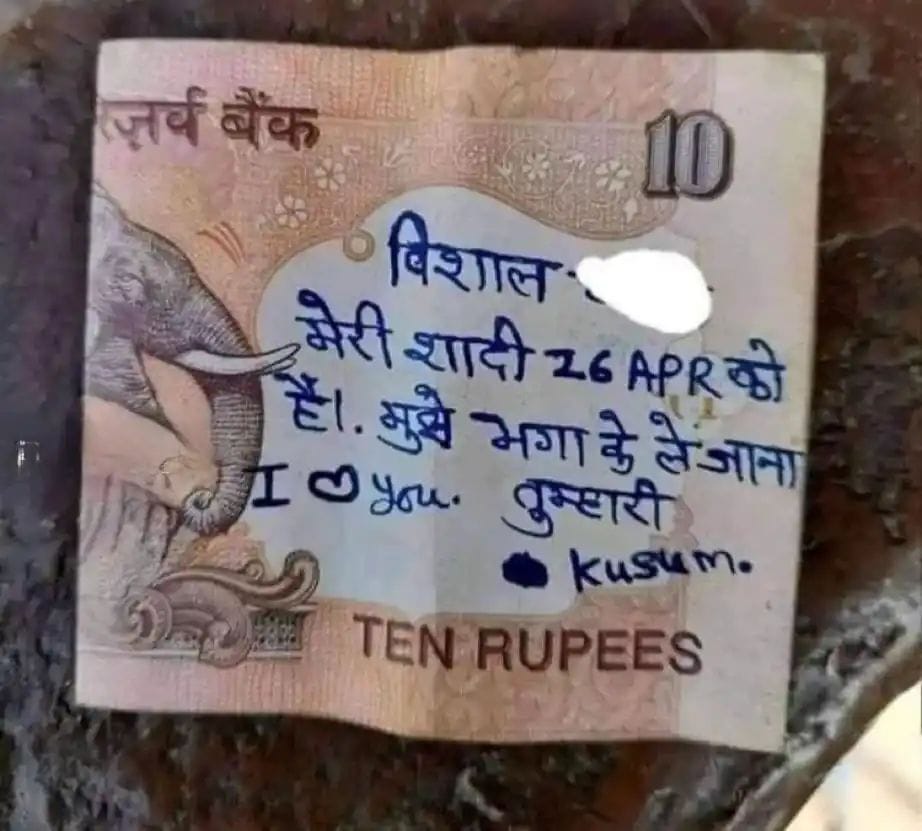 ज़र्व बैंक
10
विशाल
मेरी शादी 26 APR को
हैं।. मुझे भगा के ले जाना
I ♡ you. तुम्हारी
kusum.
TEN RUPEES